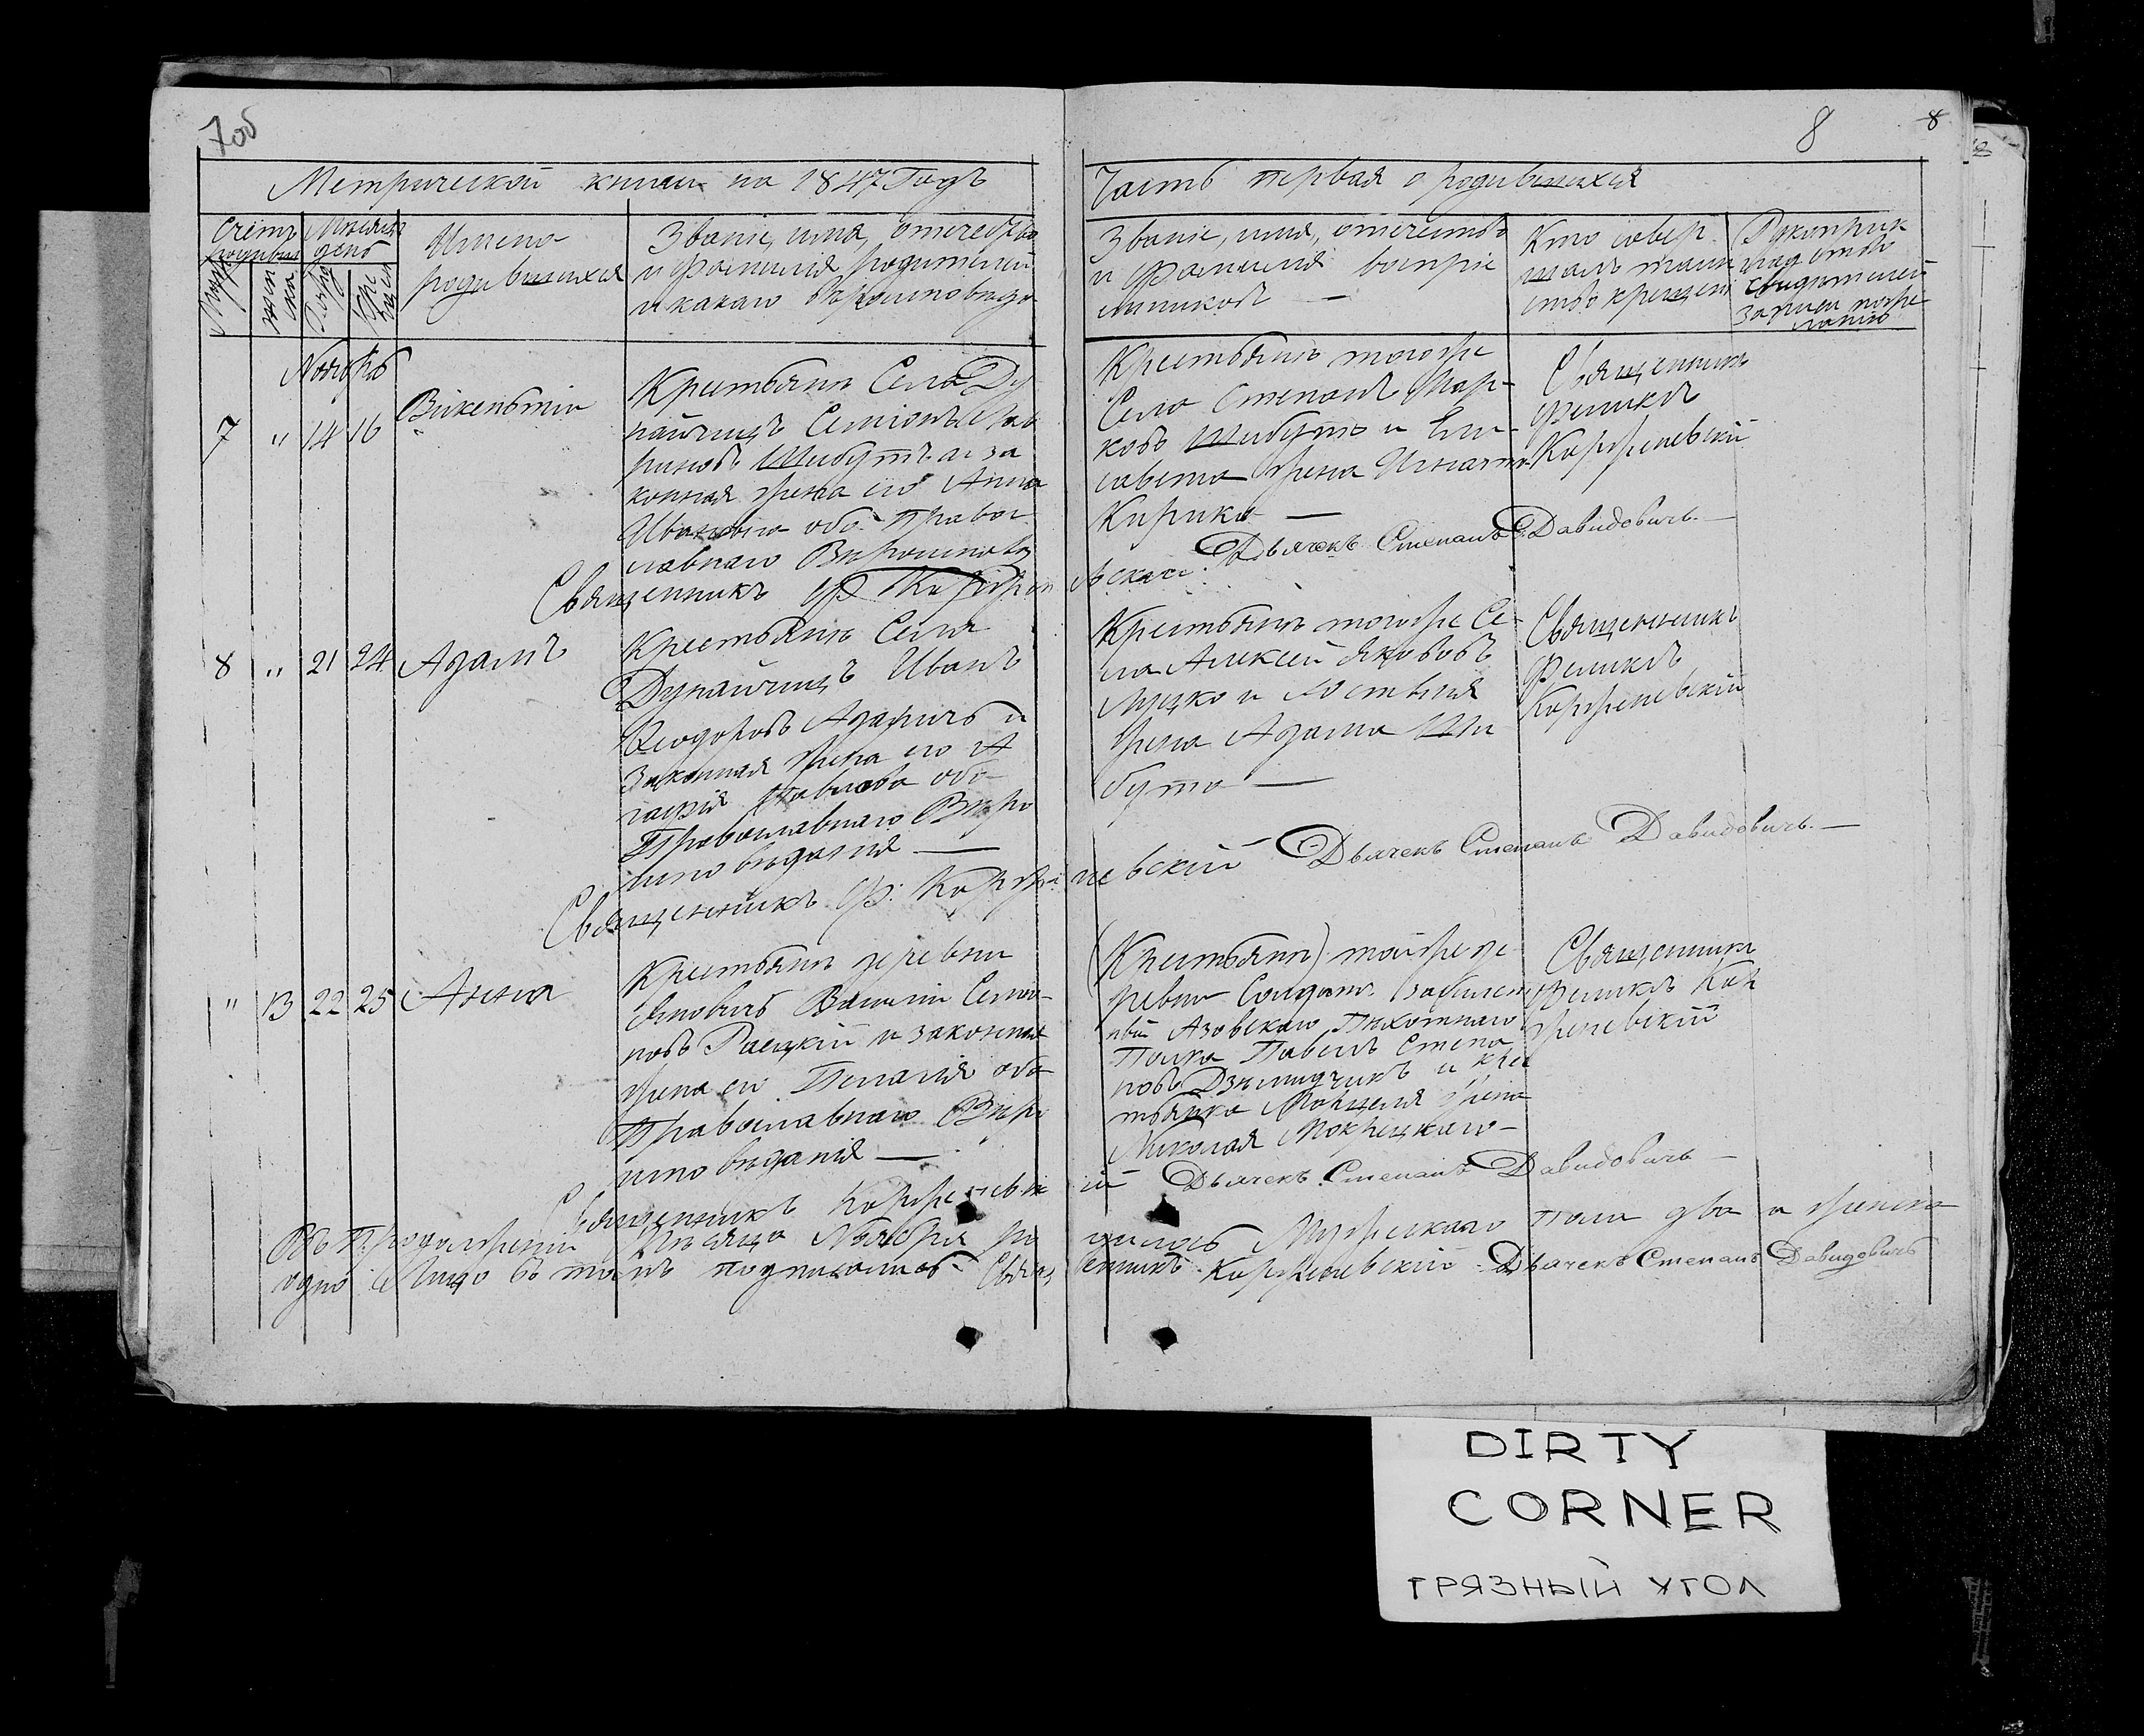 7об
8
8
Метрической книги на 1847 Годъ
Часть первая о родившихся
Счетъ родивш
Мѣсяцъ день
Имена
родившихся
Званіе, имя, отечество
и Фамилія родителей
и какаго вѣроисповѣда
Званіе, имя, отечество
и Фамилія воспріе
мниковъ —
Кто совер
шалъ таин
ство крещен
Рукоприк
ладство
свидѣтелей
записи по же
ланію
Ноябрь
7 " 14 16
Викентій
Крестьянъ Села Ду
найчицъ Семіонъ
риновъ Шибутъ и за
конная жена его Анна
Иванова оба Правос
лавнаго Вѣроисповѣ
Крестьянъ тогоже
Села Степанъ Мар-
ковъ Шибутъ и Ели-
савета жена Игната
Кирика —
Священникъ
Феликсъ
Корженевскій
Священникъ Ф Коржен
евскій Дьячекъ Степанъ Давидовичъ. —
8 " 21 24 Адамъ
Крестьянъ Села
Дунайчицъ Иванъ
Ѳеодоровъ Адамичъ и
Законная жена его А
гафія Павлова оба
Православнаго Вѣро
исповѣданія —
Крестьянъ тогоже Се-
ла Алексей Якововъ
Луцко и Юстинія
жена Адама Ши
бута —
Священникъ
Феликсъ
Корженевскій
Священникъ Ф: Корже
невскій Дьячекъ Степанъ Давидовичъ. —
" 13 22 25 Анна
Крестьянъ деревни
Яновичъ Василій Семіо-
новъ Раецкій и законная
жена его Пелагія оба
Православнаго Вѣро
исповѣданія —
(Крестьянъ) тойже де
ревни Солдатъ
Азовскаго Пѣхотнаго
Полка Павелъ Степа
новъ и кре
стьянка жена
Николая Мокрецкаго —
Священникъ
Феликсъ Кор
женевскій
Священникъ Корженевск
ій Дьячекъ Степанъ Давидовичъ —
Въ Продолженіи Мѣсяца Ноября ро
дилось Мужескаго пола два а женска
одно Лицо въ томъ подписались Свящ
енникъ Корженевскій Дьячекъ Степанъ Давидовичъ
DIRTY
CORNER
ГРЯЗНЫЙ УГОЛ